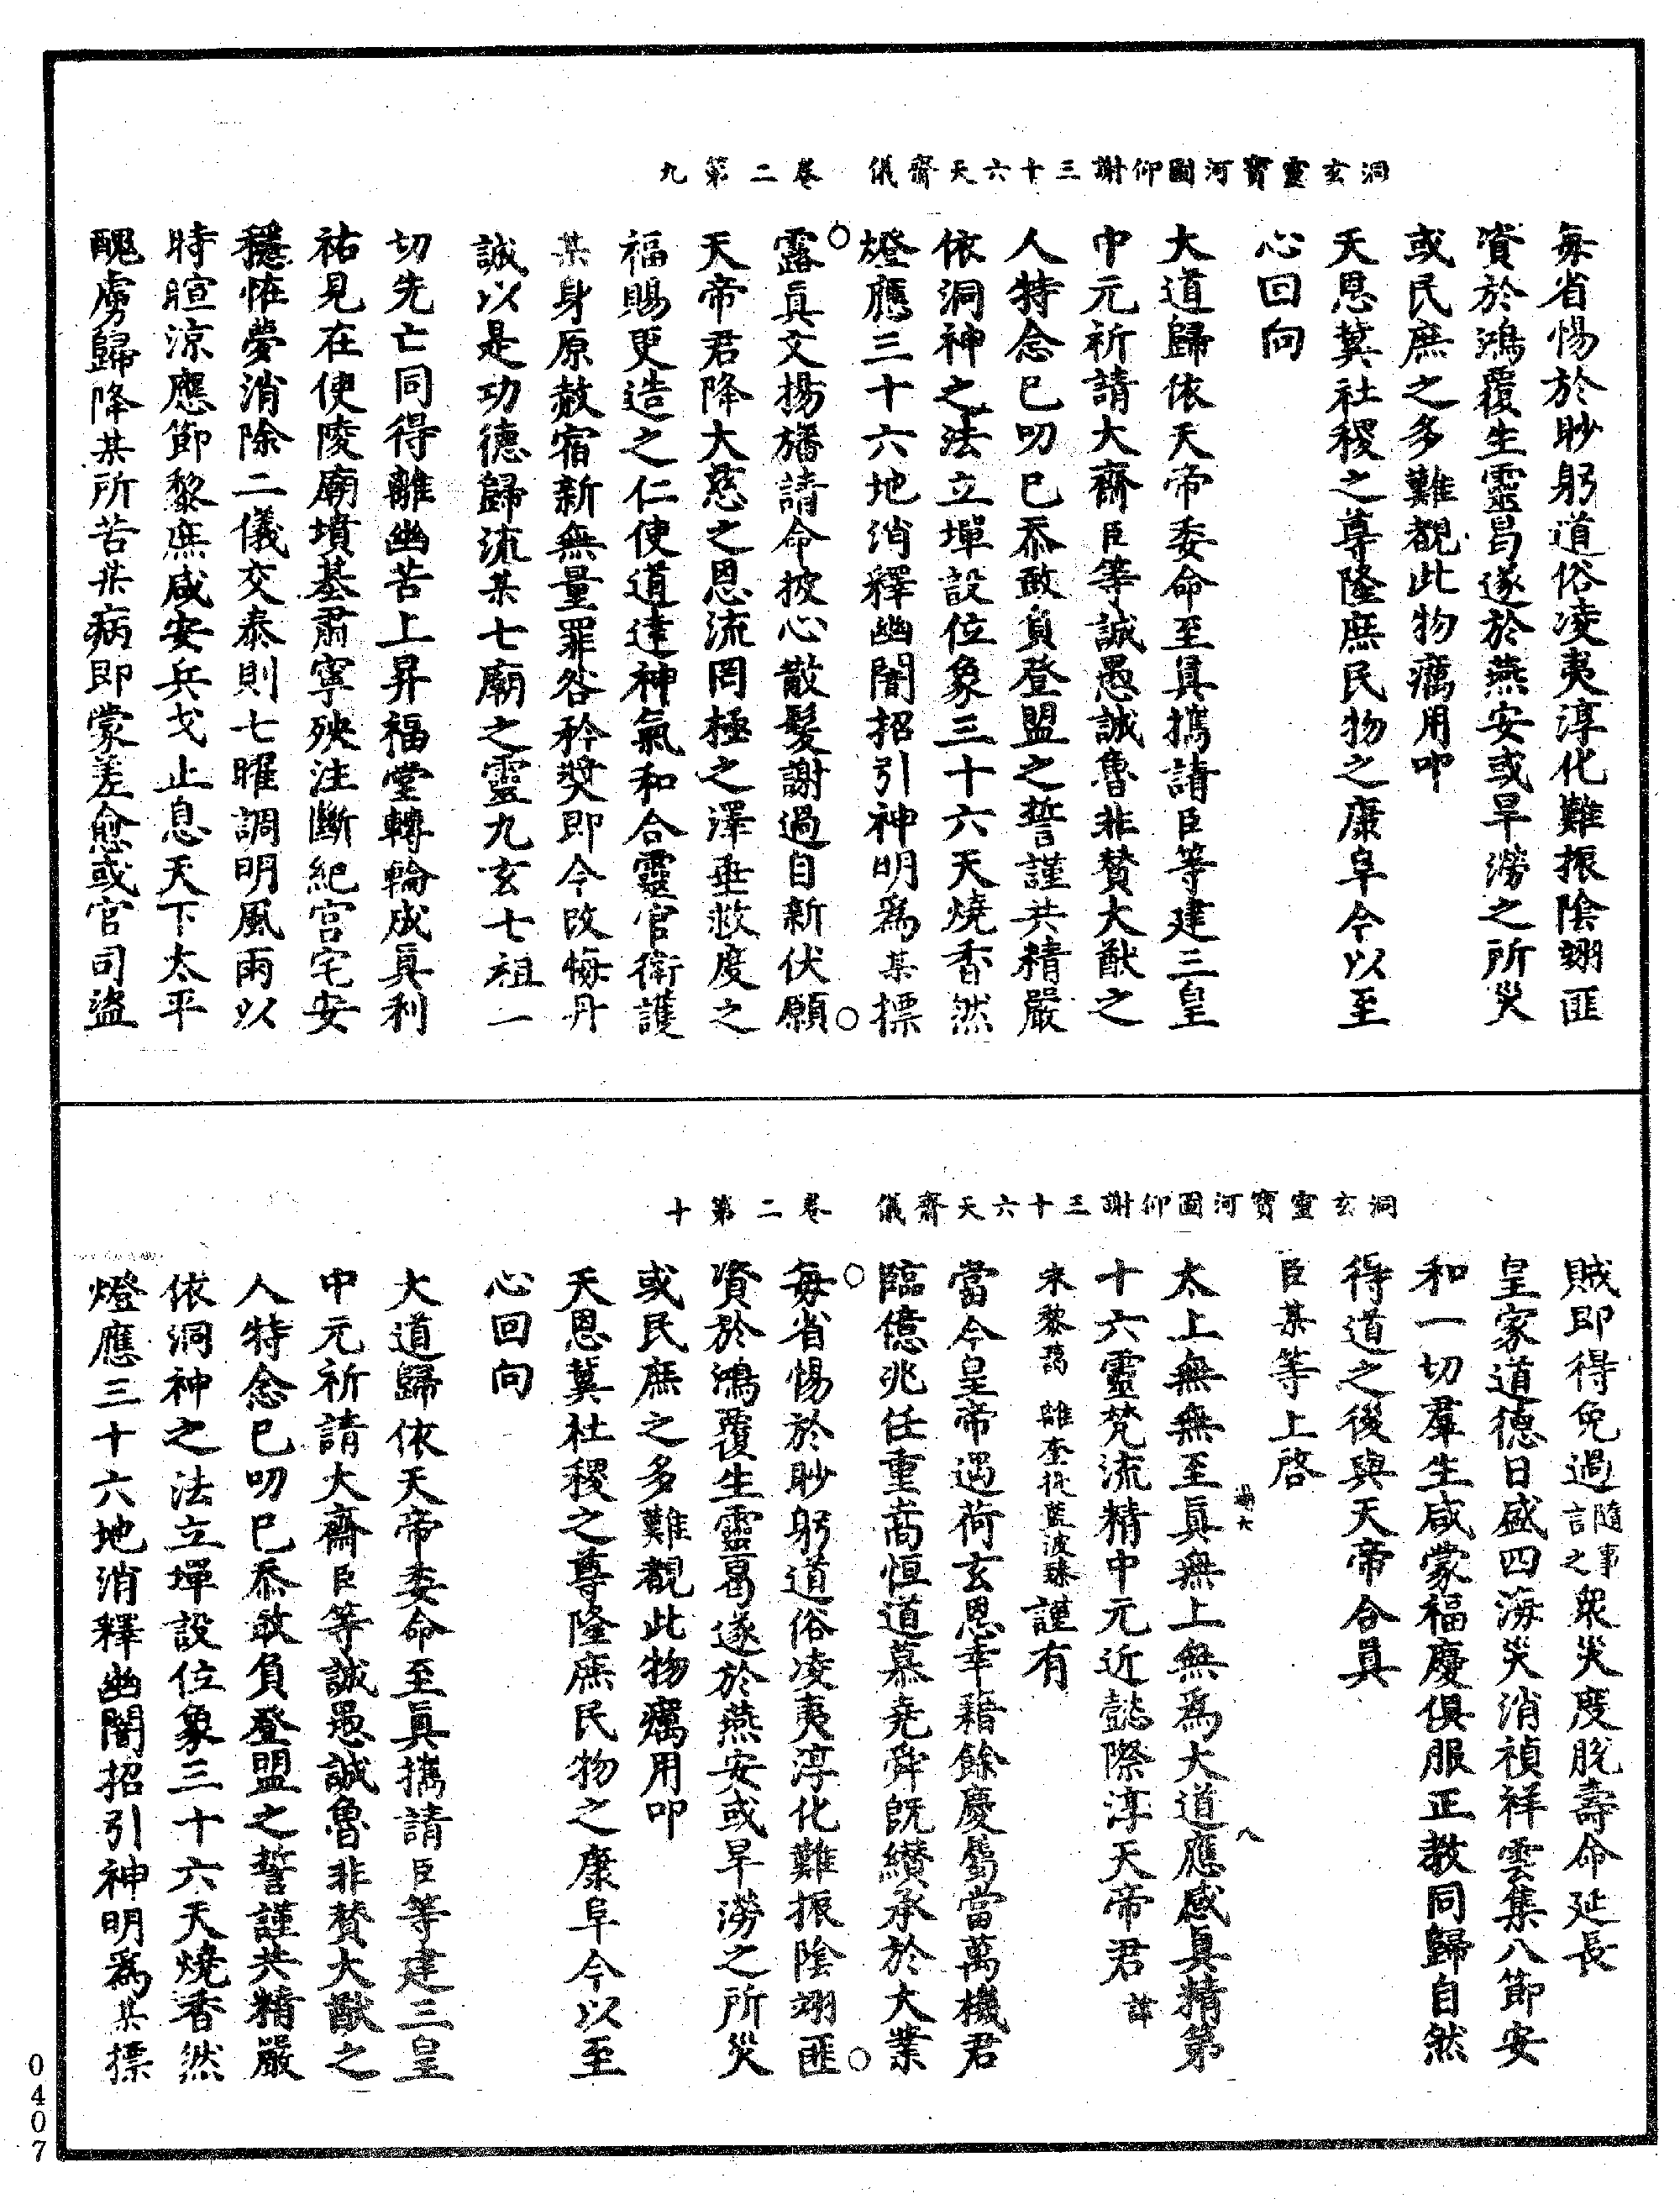 洞玄靈寶河圖仰謝三十六天齋儀　卷二第九
每省惕於眇躬道俗凌夷淳化難振陰翊匪
資於鴻覆生靈曷遂於燕安或旱澇之所災
或民庶之多難覩此物癘用叩
天恩冀社稷之尊隆庶民物之康阜今以至
心回向
大道歸依天帝委命至真攜請臣等建三皇
中元祈請大齋臣等誠愚誠魯非贊大猷之
人特念已叨已忝敢負登盟之誓謹共精嚴
依洞神之法立墠設位象三十六天燒香然
燈應三十六地消釋幽闇招引神明為某摽
露真文揚旛請命披心散髮謝過自新伏願
天帝君降大慈之恩流罔極之澤垂救度之
福賜更造之仁使道達神氣和合靈官衛護
某身原赦宿新無量罪咎矜奬即今改悔丹
誠以是功德歸流某七廟之靈九玄七祖一
切先亡同得離幽苦上昇福堂轉輪成真利
祐見在使陵廟墳墓肅寧殃注斷絕宮宅安
穩怪夢消除二儀交泰則七曜調明風雨以
時暄涼應節黎庶咸安兵戈止息天下太平
醜虜歸降某所苦某病即蒙差愈或官司盜
洞玄靈寶河圖仰謝三十六天齋儀　卷二第十
賊即得免過隨事言之眾災度脫壽命延長
皇家道德日盛四海災消禎祥雲集八節安
和一切羣生咸蒙福慶俱服正教同歸自然
得道之後與天帝合真
臣某等上啓
太上無無至真無上無為大道應感真精第
十六靈梵流精中元近懿際淳天帝君諱
末黎藹　離奎抶藍波臻謹有
當今皇帝遇荷玄恩幸藉餘慶屬當萬機君
臨億兆任重嵩恒道慕堯舜既纘承於大業
每省惕於眇躬道俗凌夷淳化難振陰翊匪
資於鴻覆生靈曷遂於燕安或旱澇之所災
或民庶之多難覩此物癘用叩
天恩冀社稷之尊隆庶民物之康阜今以至
心回向
大道歸依天帝委命至真攜請臣等建三皇
中元祈請大齋臣等誠愚誠魯非贊大猷之
人特念已叨已忝敢負登盟之誓謹共精嚴
依洞神之法立墠設位象三十六天燒香然
燈應三十六地消釋幽闇招引神明為某摽
0407